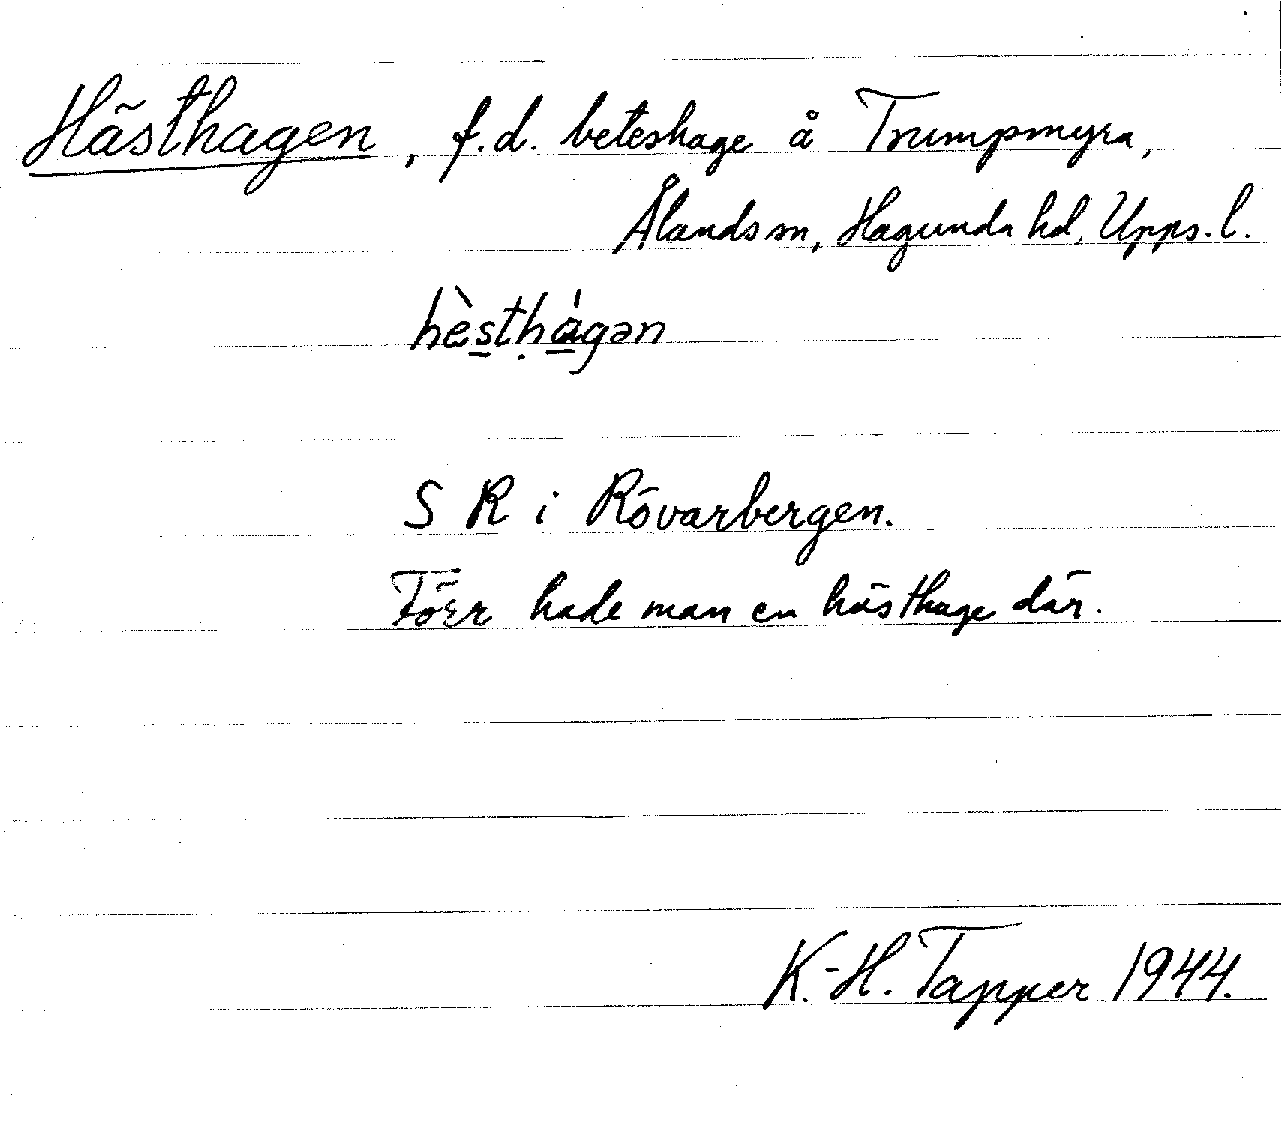 Hästhagen, f.d. beteshage å Trumpmyra,
Åland sn, Hagunda hd, Upps. l.
hèstḥágən
S R i Rövarbergen.
Förr hade man en hästhage där.
K.-H. Tapper 1944.